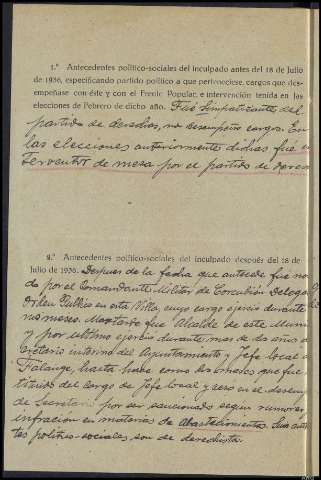 1.º Antecedentes político-sociales del inculpado antes del 18 de Julio
de 1936, especificando partido político a que perteneciese, cargos que des-
empeñase con éste y con el Frente Popular, e intervención tenida en las
elecciones de Febrero de dicho año. Fué simpatizante del
partido de derechas, no desempeñó cargo. En
las elecciones anteriormente dichas fué in
terventor de mesa por el partido de derech
2.º Antecedentes político-sociales del inculpado después del 18 de
Julio de 1936. Despues de la fecha que antecede fué no
do por el Comandante Militar de Corcubión Delegado
Orden Público en esta Villa, cuyo cargo ejerció durante
nos meses. fue Alcalde de este Muni
y por ultimo ejerció durante mas de dos años
cretario interino del Ayuntamiento y Jefe local
Falange, hasta hace como meses que fue
tituido del cargo de Jefe local y cesó en el desem
de Secretario por ser sancionado segun rumores
infracción en materias de abastecimientos. Sus antece
tes politico-sociales son de derechista.